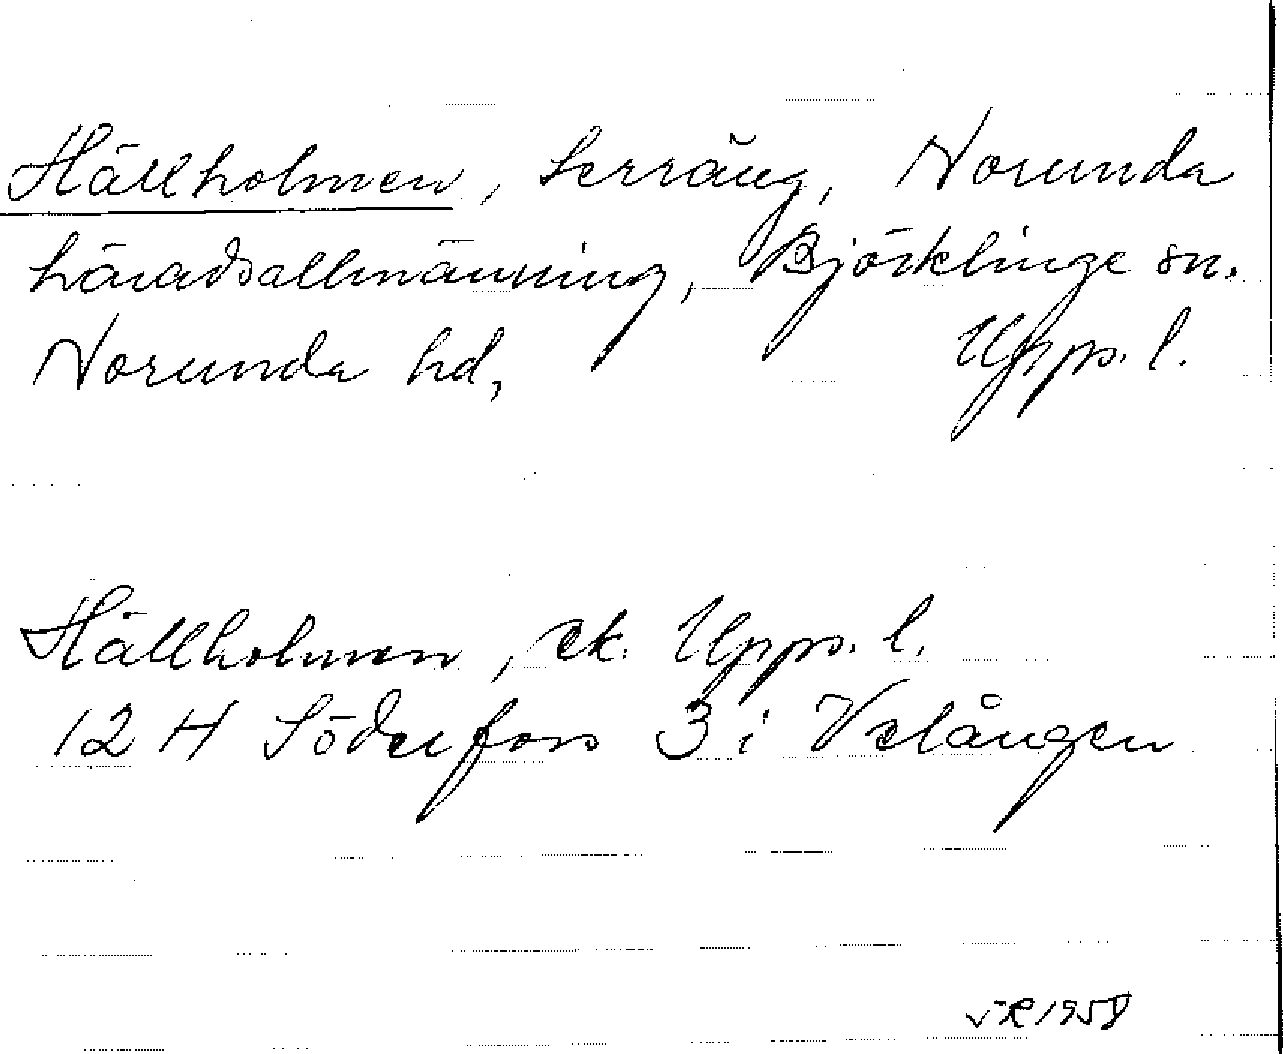 Hällholmen, terräng, Norunda
häradsallmänning, Björklinge sn.
Norunda hd, Upps. l.
Hällholmen, ek. Upps. l.
12 H Söderfors 3 i Velången
1958